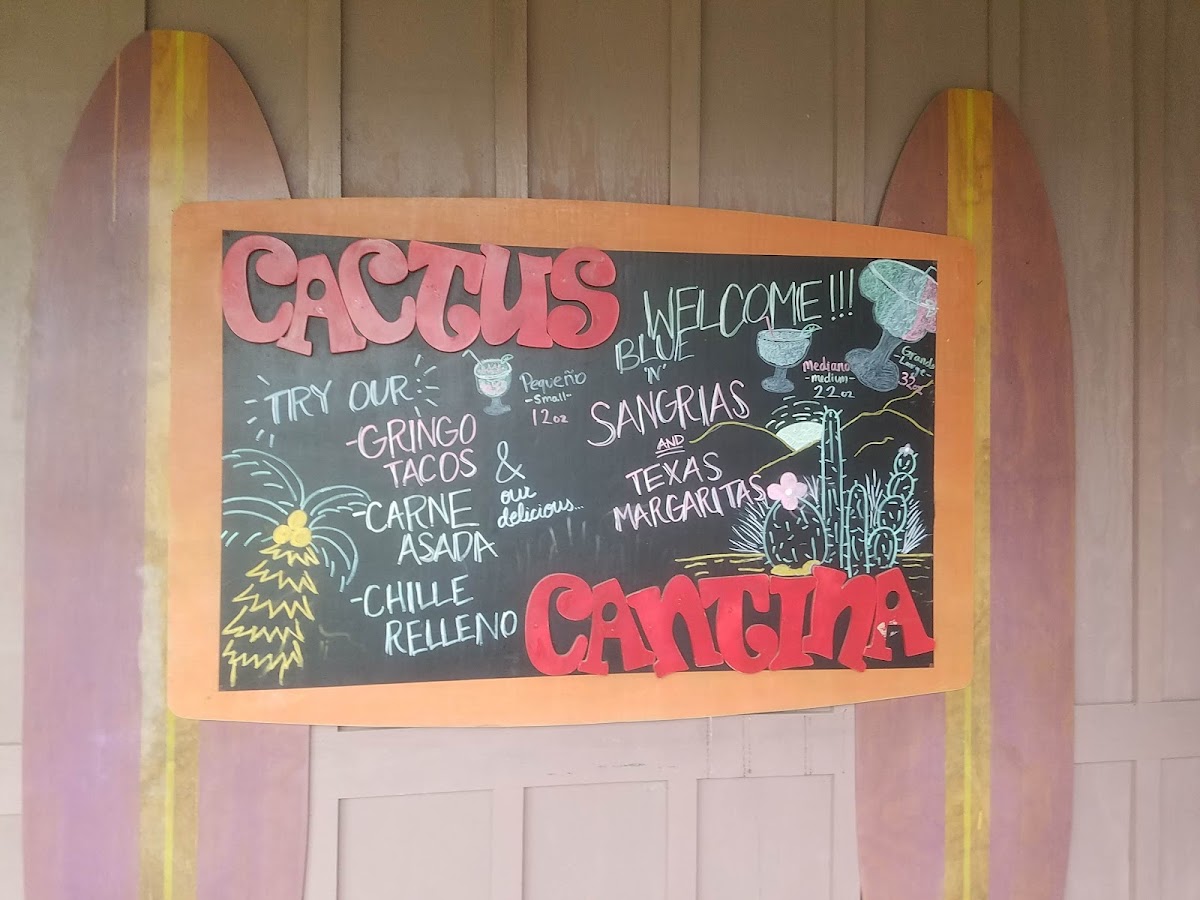 CACTUS
WELCOME!!!
TRY OUR
-GRINGO
TACOS
-CARNE
ASADA
-CHILLE
RELLENO
&
our
delicious...
Pequeño
-Small-
12oz
BLUE
'N'
SANGRIAS
AND
TEXAS
MARGARITAS
Mediano
-medium-
22oz
Grande
-Large-
32oz
CANTINA